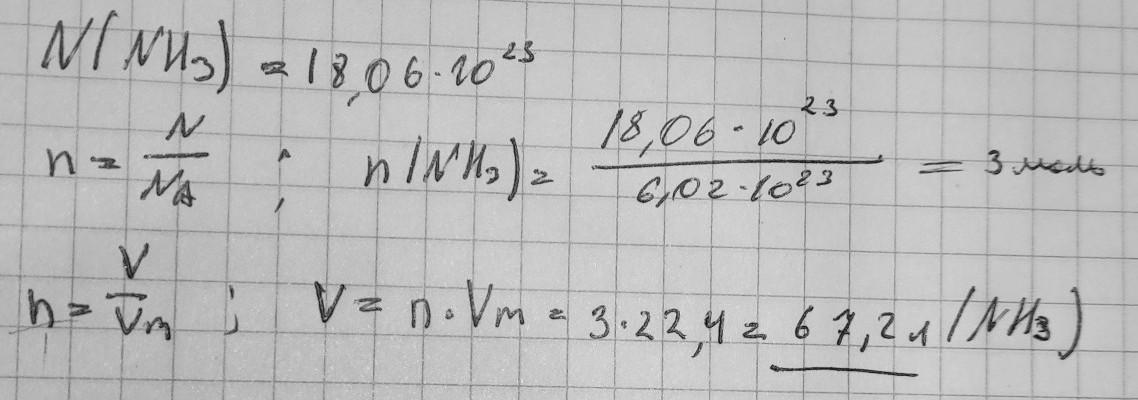 N(NH₃) = 18,06·10²³
n = N/N_A ; n(NH₃) = 18,06·10²³/6,02·10²³ = 3 моль
n = V/Vm ; V = n·Vm = 3·22,4 = 67,2 л (NH₃)